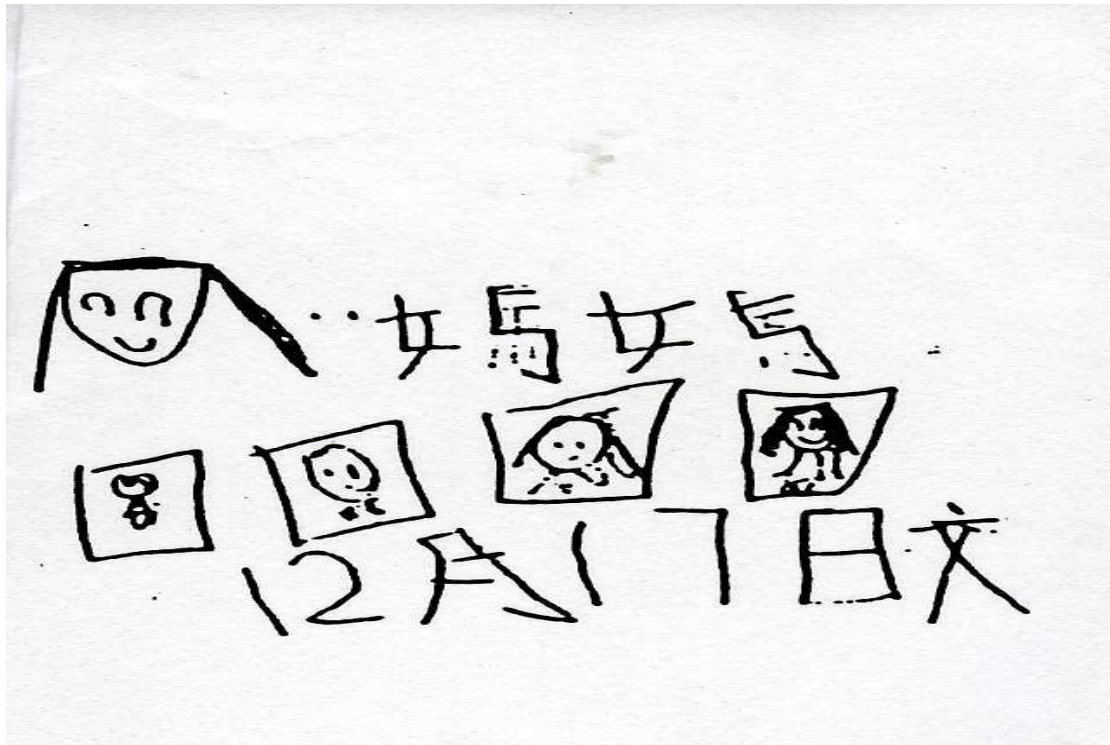 媽媽
12月17日文